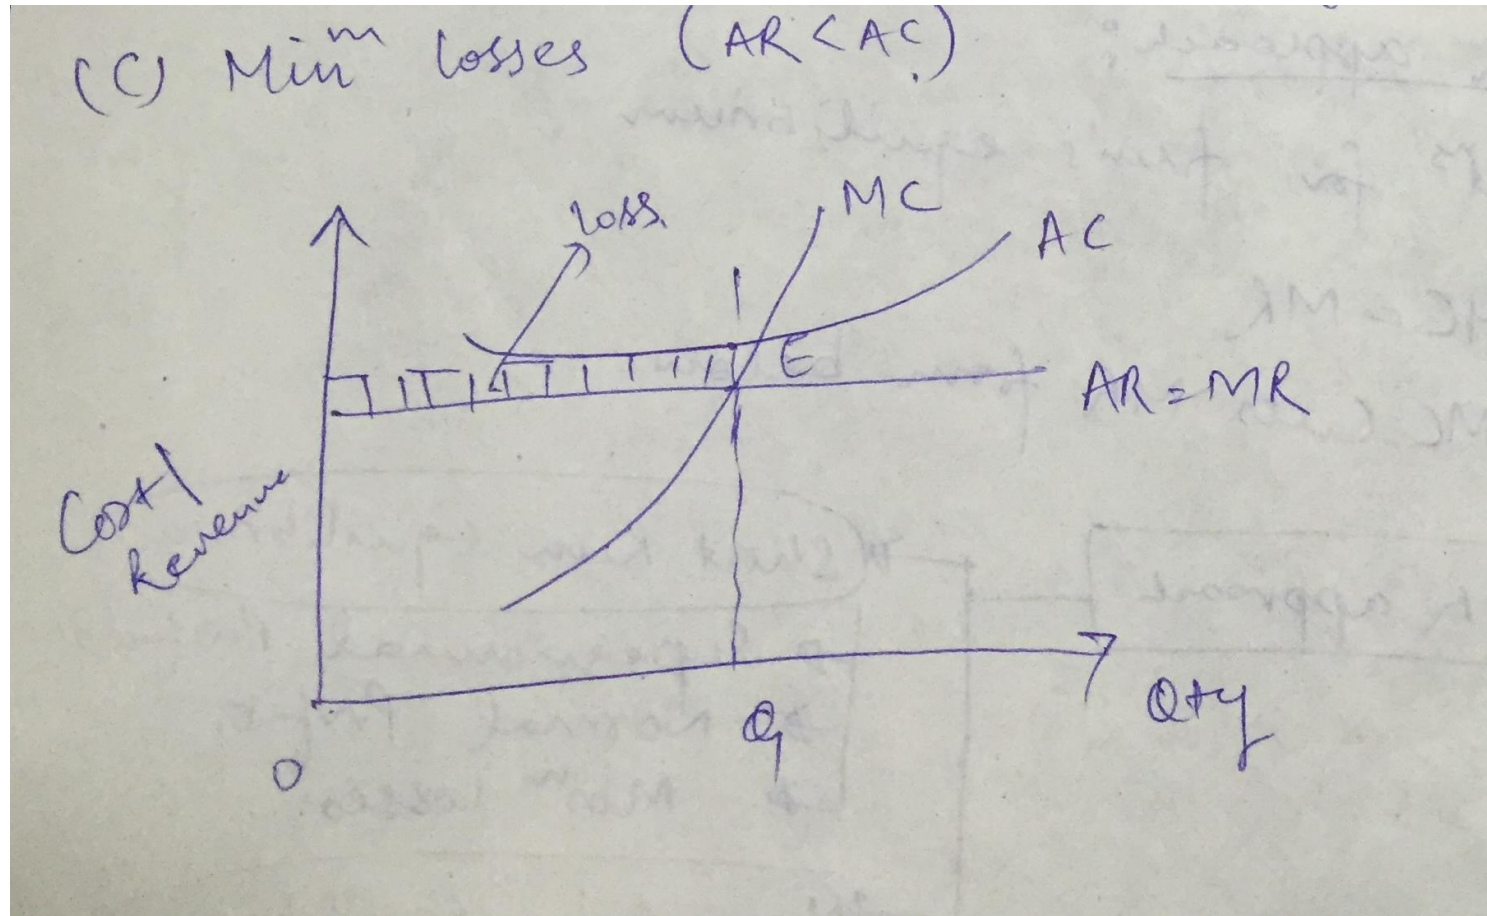 (C) Minᵐ losses (AR < AC)
loss
MC
AC
E
AR = MR
Cost/
Revenue
O
Q₁
Qty